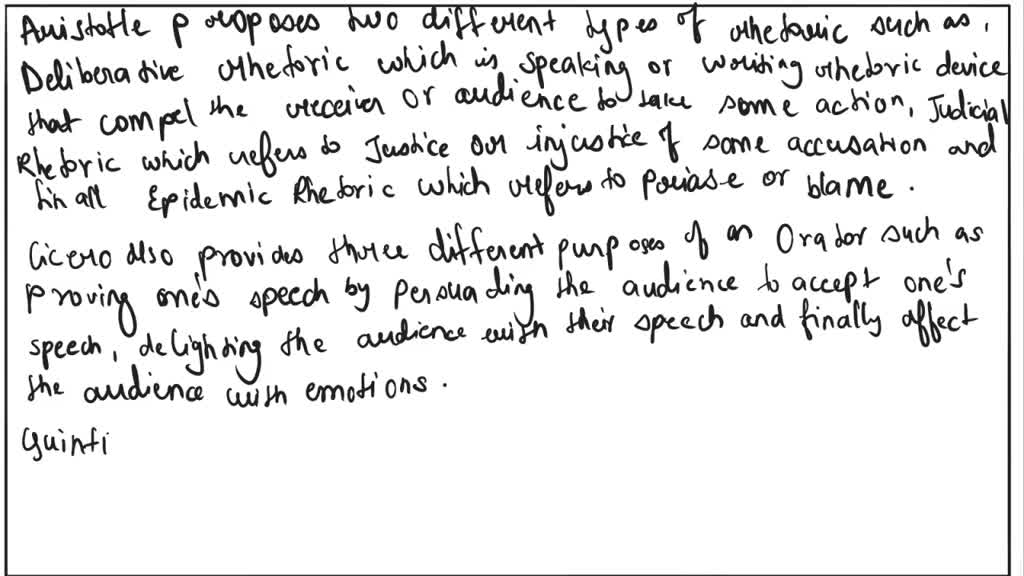 Aristotle proposes two different types of rhetoric such as,
Deliberative rhetoric which is speaking or writing rhetoric device
that compel the receiver or audience to take some action, Judicial
Rhetoric which refers to Justice or injustice of some accusation and
finall Epidemic Rhetoric which refers to Poriase or blame.
Cicero also provides three different purposes of an Orator such as
proving one's speech by persuading the audience to accept one's
speech, delighting the audience with their speech and finally affect
the audience with emotions.
Quinti